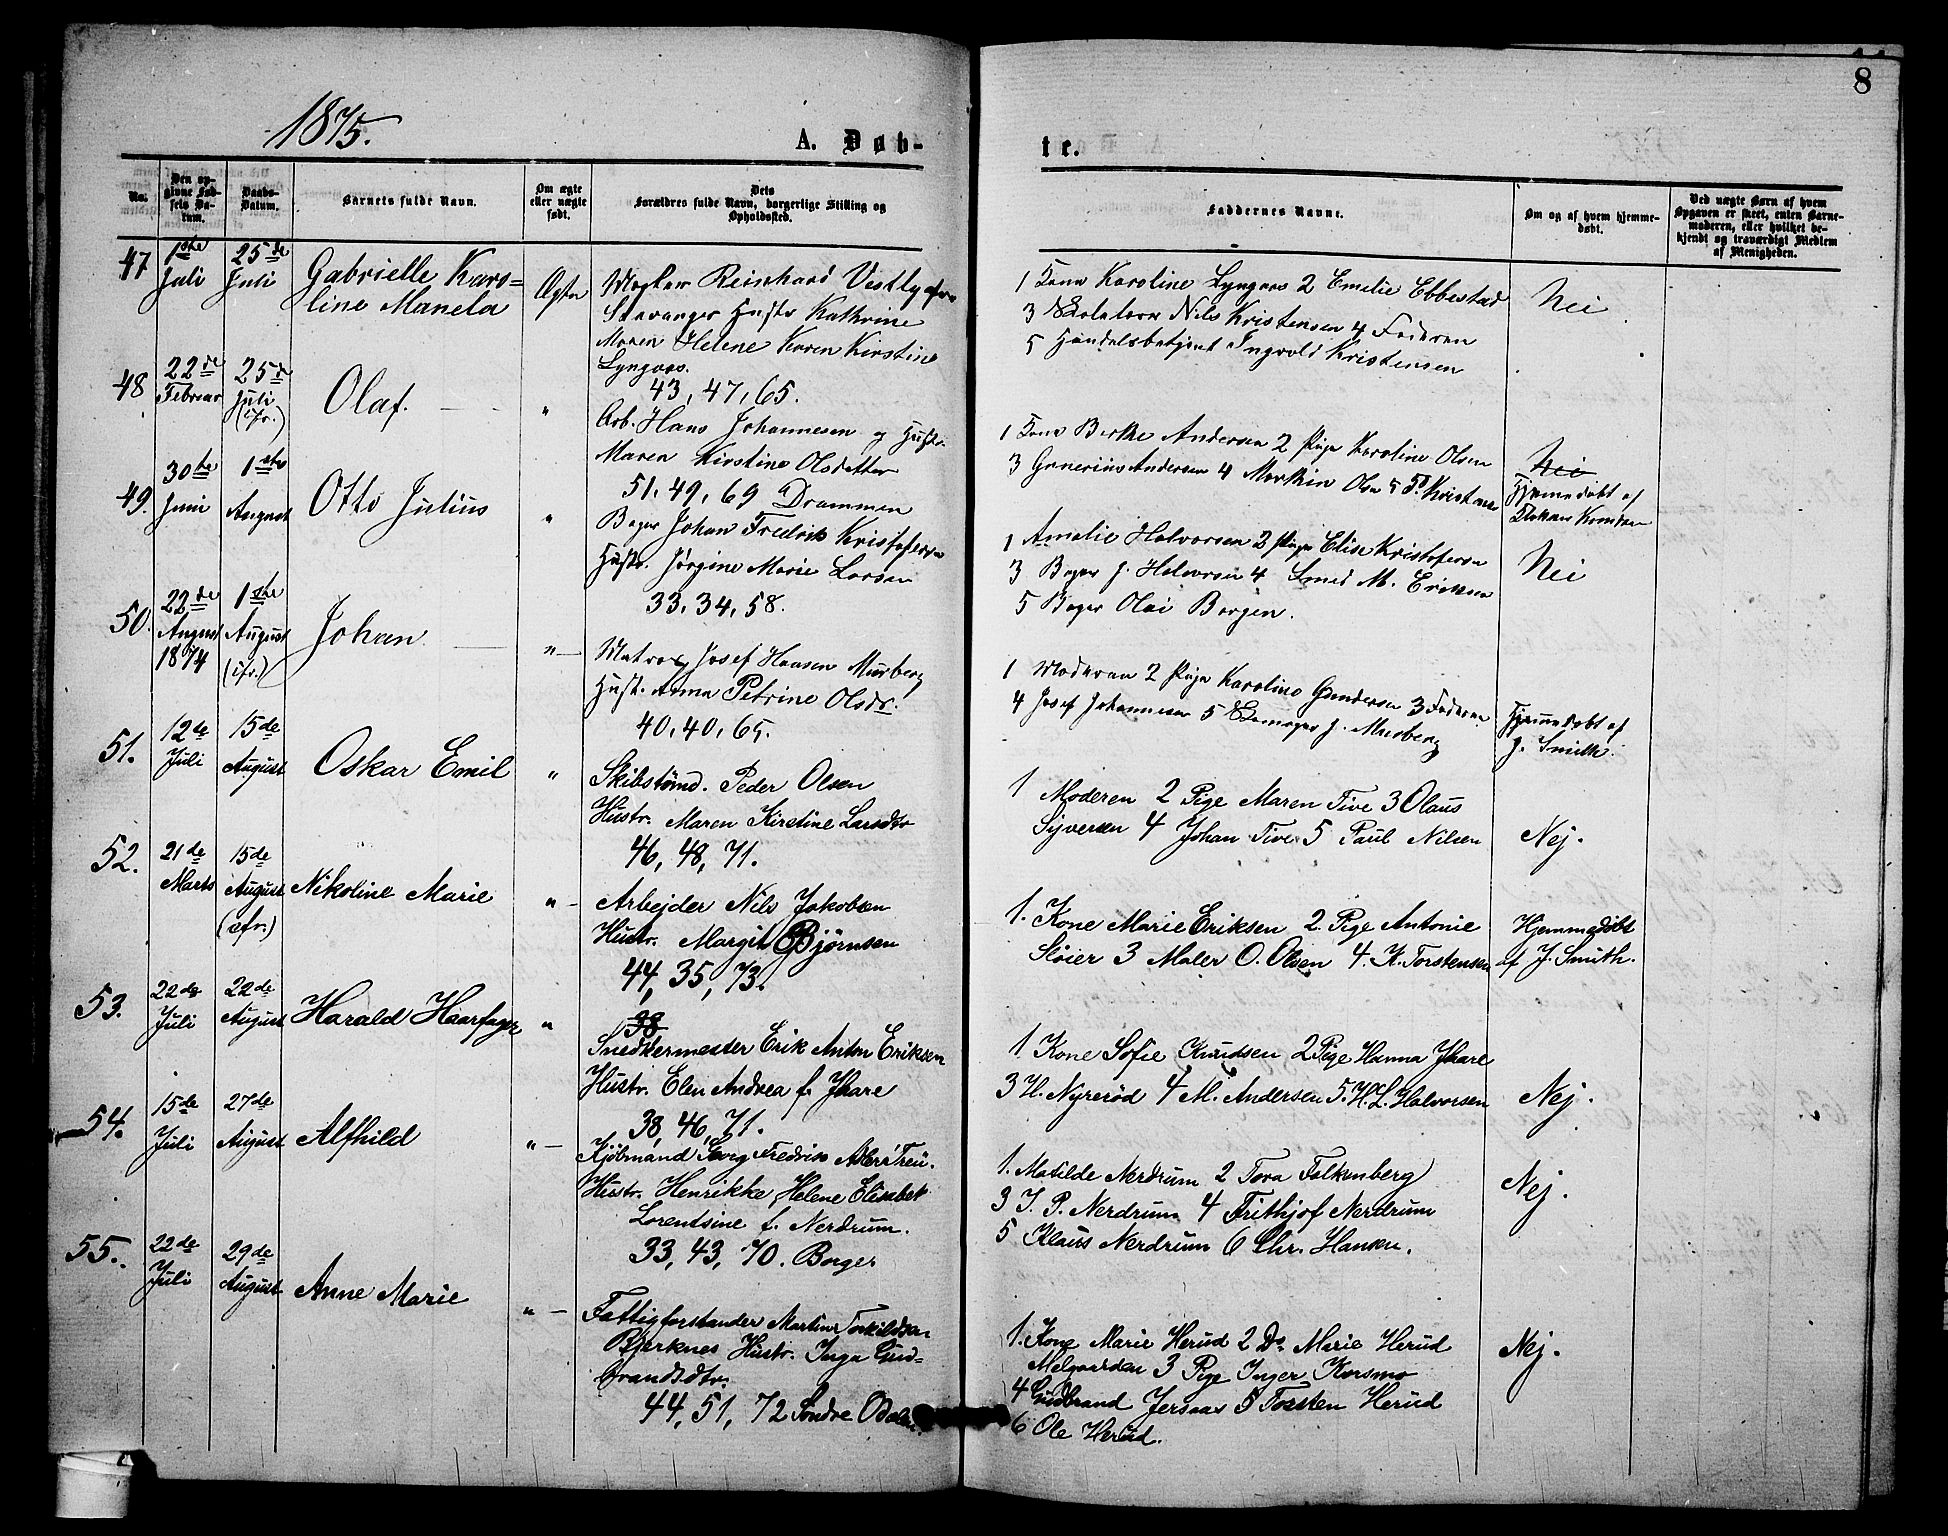 8
1875.
A. Døb-
te.
No.
Den op-
givne Fød-
sels Da-
tum.
Daabs-
Datum.
Barnets fulde Navn.
Om ægte
eller uægte
født.
Dets
Forældres fulde Navn, borgerlige Stilling og
Opholdssted.
Faddernes Navne.
Om og af hvem hjemme-
døbt.
Ved uægte Børn af hvem
Opgaven er skeet, enten Barne-
moderen, eller hvilket be-
kjendt og troværdigt Medlem
af Menigheden.
47
1ste
Juli
25de
Juli
Gabrielle Karo-
line Manela
Ægte
Reinhard Vestly
Stavanger Hustr Kathrine
Maren Helene Karen Kirstine
Lyngaas.
43, 47, 65.
1 Kone Karoline Lyngaas 2 Emilie Ebbestad
3 Nils Kristensen 4 Faderen
5 Handelsbetjent Ingvald Kristensen
Nei
48
22de
Februar
25de
Juli
(ifr.)
Olaf.
"
Arb. Hans Johannesen og Hustr.
Maren Kirstine Olsdatter
51, 49, 69 Drammen
1 Kone Berthe Andersen 2 Pige Karoline Olsen
3 Andersen 4 Martin Olsen 5 Kristensen
Nei
Hjemmedøbt af
49.
30te
Juni
1ste
August
Otto Julius
"
Bager Johan Fredrik Kristofersen
Hustr. Jørgine Marie Larsen
33, 34, 58.
1 Amalie Halvorsen 2 Pige Elise Kristofersen
3 Bager J. Halvorsen 4 Smed M. Eriksen
5 Bager Olai Borgen.
Nei
50.
22de
August
1874
1ste
August
(ifr.)
Johan
" —
Matros Josef Hansen Murberg
Hust. Anna Petrine Olsdr.
40, 40, 65.
1 Moderen 2 Pige Karoline Gundersen 3 Faderen
4 Josef Johannesen 5 J. Murberg
Hjemmedøbt af
J. Smith.
51.
12de
Juli
15de
August
Oskar Emil
"
Skibstømd. Peder Olsen
Hustr. Maren Kirstine Larsdtr
46, 48, 71.
1 Moderen 2 Pige Maren Tive 3 Olaus
Syversen 4 Johan Tive 5 Paul Nilsen
Nej.
52.
21de
Marts
15de
August
(efr.)
Nikoline Marie
" —
Arbejder Nils Jakobsen
Hustr. Margit Bjørnsen
44, 35, 73.
1. Kone Marie Eriksen 2. Pige Antonie
Sløier 3 Maler O. Olsen 4. K. Torstensen
Hjemmedøbt
af J. Smith.
53.
22de
Juli
22de
August
Harald Haarfager
"
38
Snedkermester Erik Anton Eriksen
Hustr. Elen Andrea f. Jhare
38, 46, 71.
1. Kone Sofie Knudsen 2 Pige Hanna Jhare
3 H. Nyrerød 4 M. Andersen 5. H. L. Halvorsen
Nej.
54.
15de
Juli
27de
August
Alfhild
" —
Kjøbmand Georg Fredrik Adler Treu.
Hustr. Henrikke, Helene Elisabet
Lorentsine f. Nerdrum.
33, 43, 70. Borger
1. Matilde Nerdrum 2 Tova Falkenberg
3 J. P. Nerdrum 4 Frithjof Nerdrum
5 Klaus Nerdrum 6 Chr. Hansen.
Nej.
55.
22de
Juli
29de
August
Anne Marie
" —
Fattigforstander Martin Torkildsen
Bjerknes Hustr. Inga Gud-
brandsdtr.
44, 51, 72 Søndre Odalen.
1. Kone Marie Herud 2 Do Marie Herud
Melgaarden 3 Pige Inger Korsmo
4 Gudbrand Jersaas 5 Torsten Herud
6 Ole Herud.
Nej.